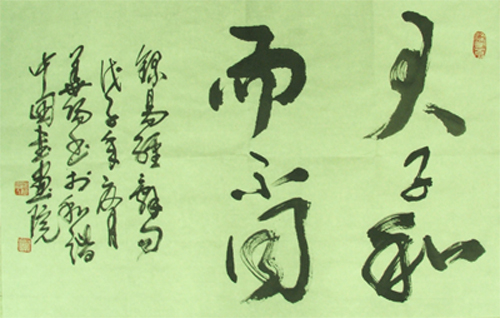 君子和
而不同
易經句
戊子年月
书於和諧
中國書畫院